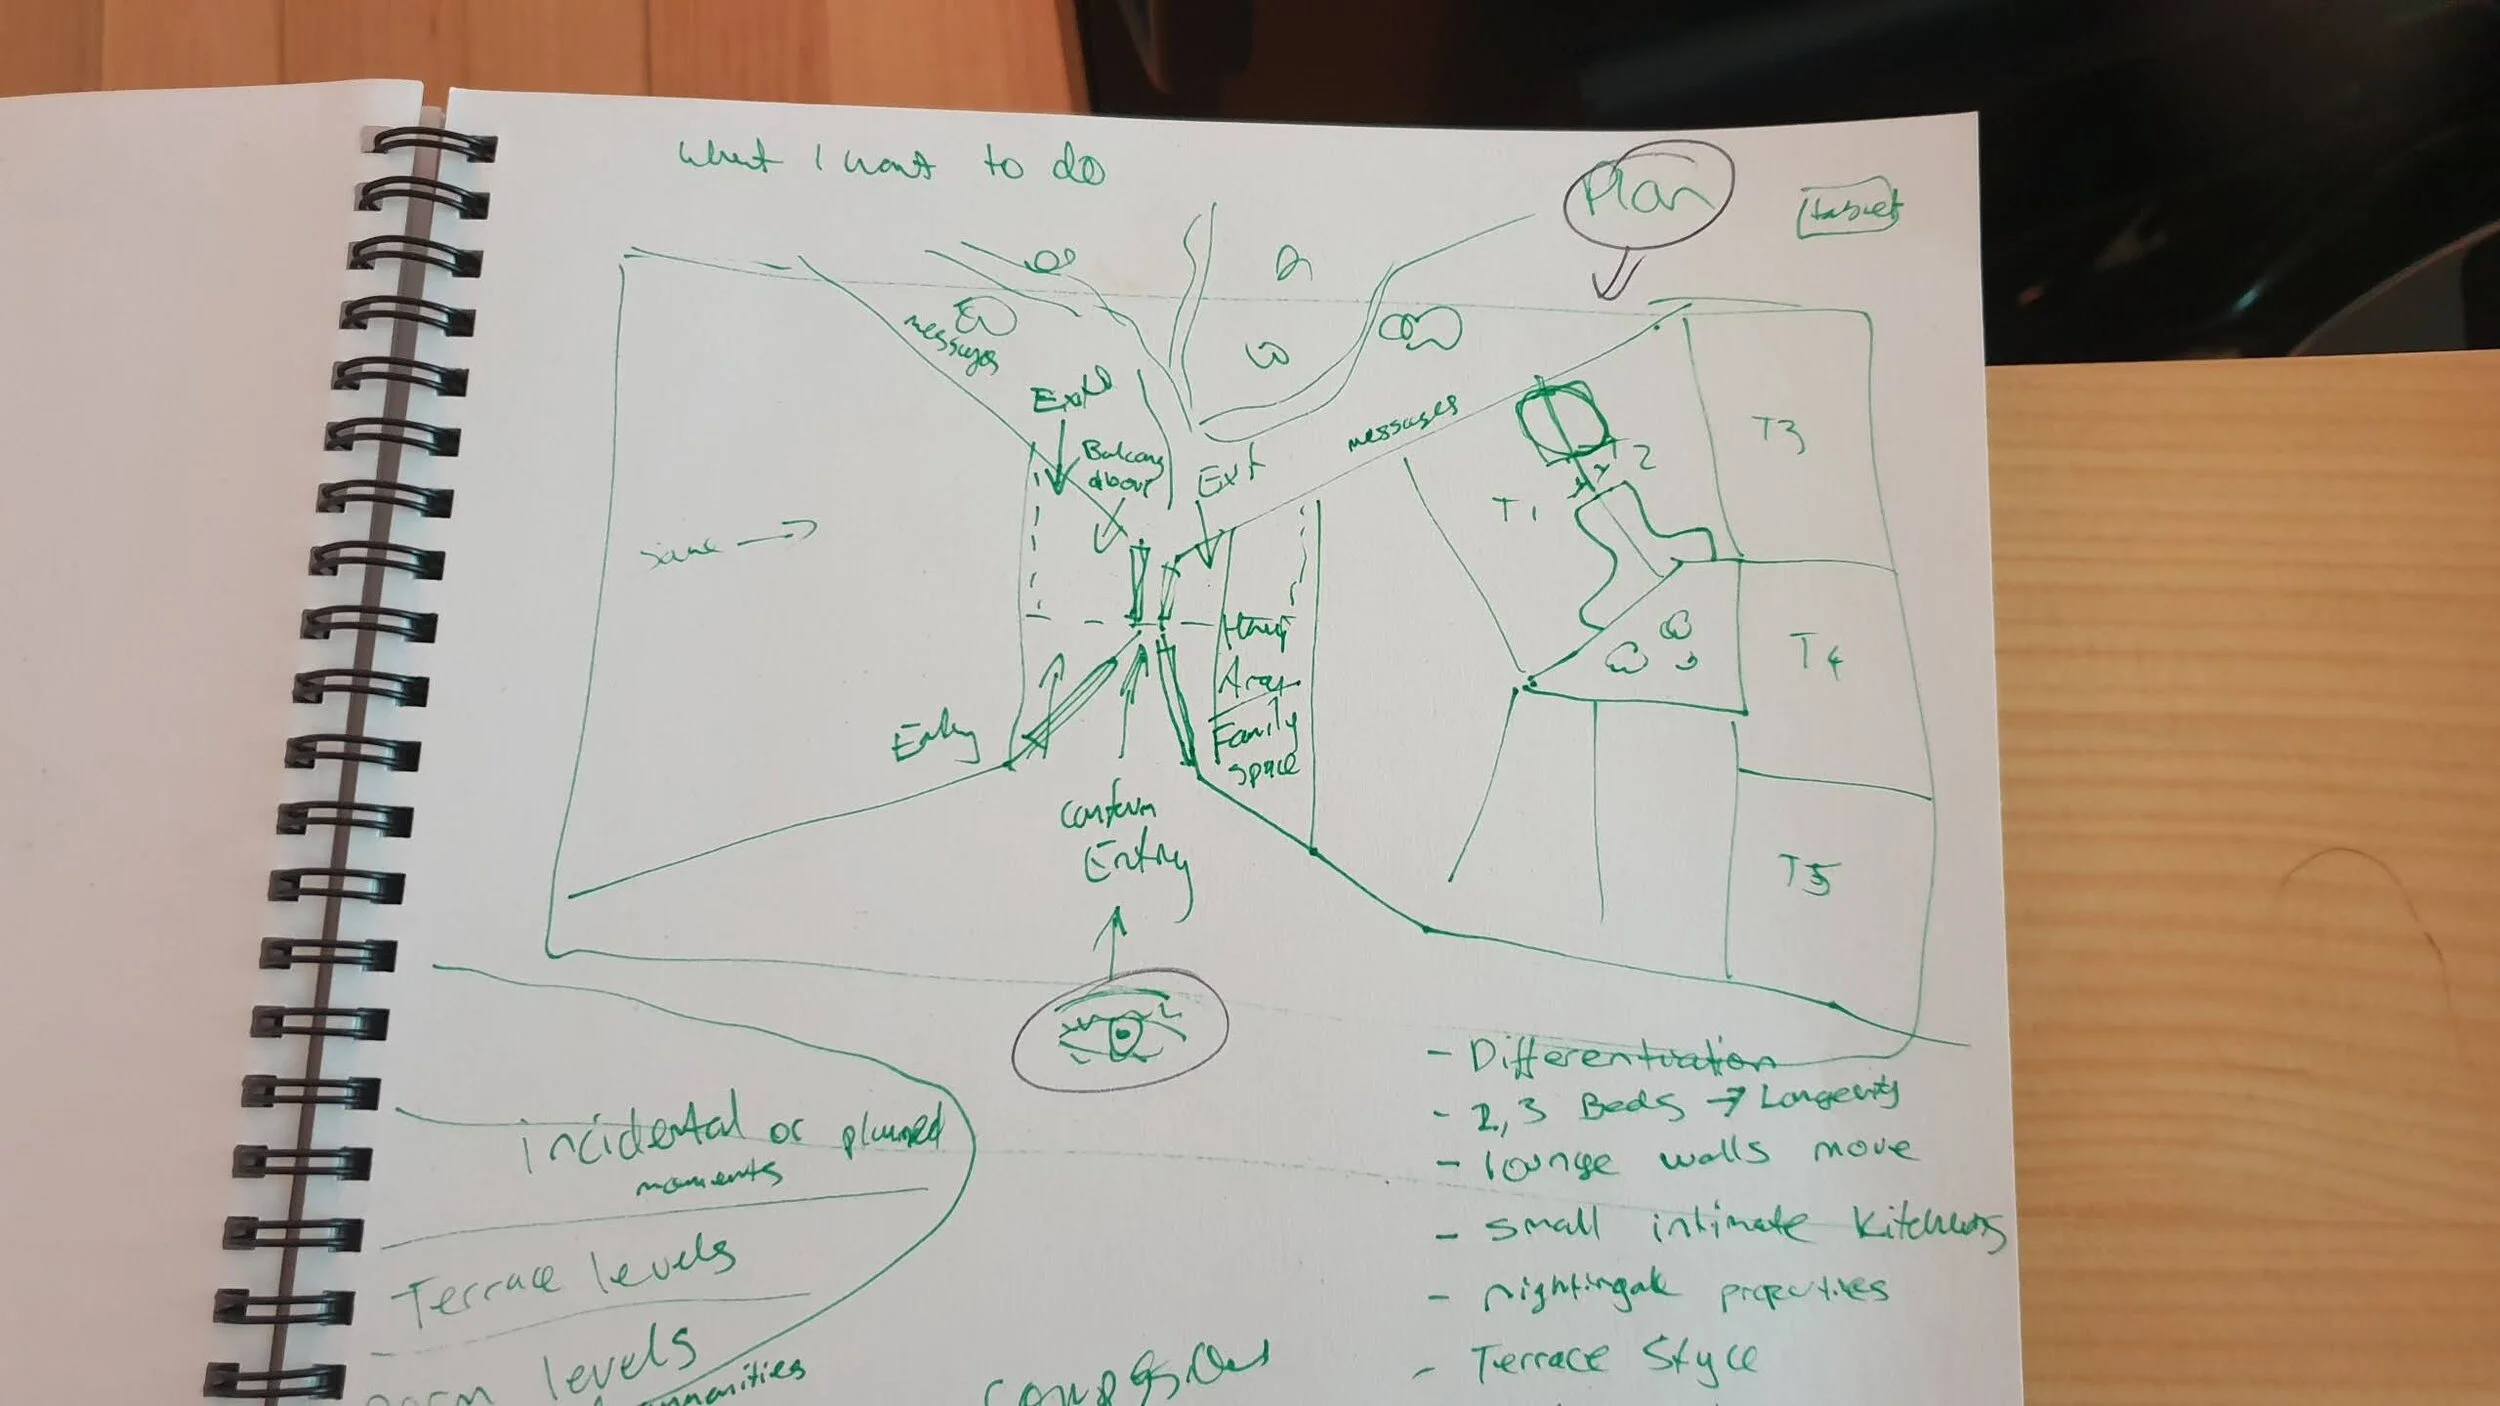 What I want to do
Plan
messages
Exit
Balcony
above
Exit
messages
T1
T2
T3
same
Area
Family
space
T4
Entry
Confirm
Entry
T5
- Differentiation
- 2,3 Beds → Longevity
- lounge walls move
- small intimate Kitchens
- nightingale properties
- Terrace Style
incidental or planned
moments
Terrace levels
levels